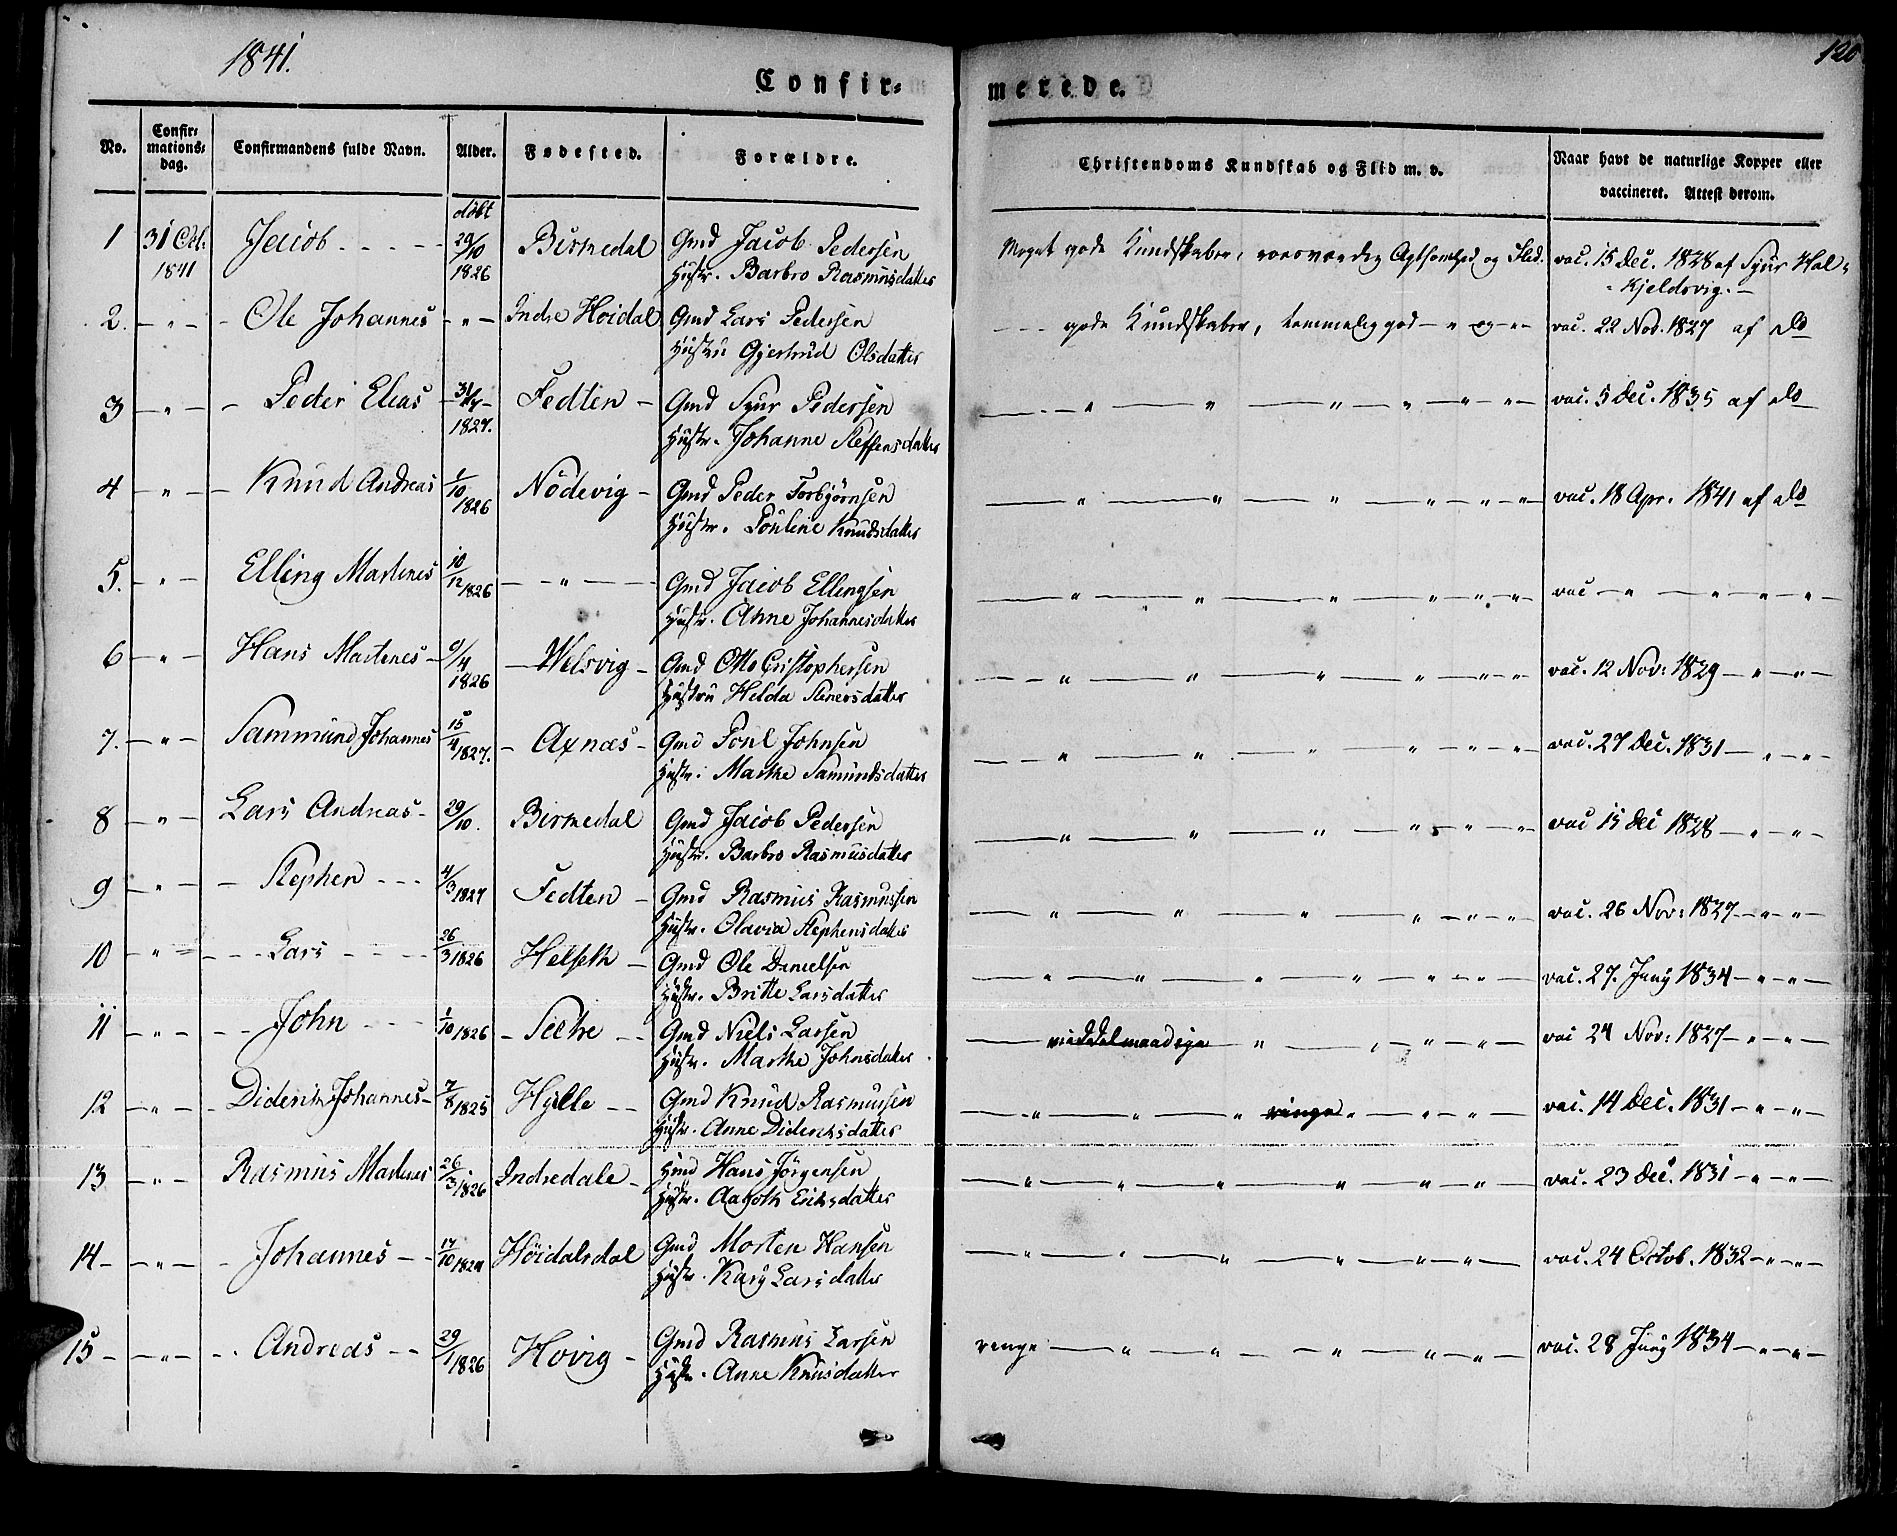 1841.
120
Confir= merede.
No. Confir= mations= dag. Confirmandens fulde Navn. Alder. Fødested. Forældre. Christendoms Kundskab og Flid m. v. Naar havt de naturlige Kopper eller vaccineret. Attest derom.
døbt
1 31 Oct. 1841 Jacob - - - - 29/10 1826 Birmedal Gmd Jacob Pedersen Meget gode Kundskaber, roesværdig Agtsomhed og Flid. vac. 15 Dec. 1828 af Syur Hal=
Hustr. Barbro Rasmusdatter =Kjeldsvig. -
2. - " - - Ole Johannes - " - Indre Høidal Gmd Lars Pedersen - - - gode Kundskaber, temmelig god - " og - " - vac. 22 Nov. 1827 af do
Hustru Gjertrud Olsdatter
3 - " - - Peder Elias 1827. Fedten - Gmd Syur Pedersen - " - " - " - " - " - " - vac. 5 Dec. 1835 af do
Hustr. Johanne Steffensdatter
4 - " - - Knud Andreas 1/10 1826 Nödevig - Gmd Peder Torbjörnsen - " - " - " - " - " - " - vac. 18 Apr. 1841 af do
Hustr. Poulene Knudsdatter
5. - " - Elling Martines 10/12 1826 - " - Gmd Jacob Ellingsen - " - " - " - " - " - " - vac - " - " - " - " -
Hustr. Anne Johannesdatter
6 - " - Hans Martenes - 9/4 1826 - Welsvig - Gmd Otto Cristophersen - " - " - " - " - " - " - vac. 12 Nov: 1829 - " - " -
Hustru Helda Stenersdatter
7. - " - Sammund Johannes 15/4 1827. - Axnæs - Gmd Poul Johnsen - " - " - " - " - " - " - vac. 27 Dec. 1831 - " - " -
Hustr: Marthe Samundsdatter
8 - " - Lars Andreas - 29/10. Birmedal Gmd Jacob Pedersen - " - " - " - " - " - " - vac 15 Dec 1828 - " - " -
Hustr. Barbro Rasmusdatter
9 - " - - Stephen - - - 4/3 1827 Fedten - Gmd Rasmus Rasmussen - " - " - " - " - " - " - vac. 26 Nov: 1827 - " - " -
Hustr. Olavia Stephensdatter
10 - " - - - Lars - - - - 26/3 1826 Helseth - Gmd Ole Danielsen - " - " - " - " - " - " - vac. 27. Juny 1834 - " - " -
Hustr. Britte Larsdatter
11 - " - - - John - - - 1/10 1826 - Sætre - - Gmd Niels Larsen - middelmaadige - " - " - " - " - vac 24 Nov: 1827 - " - " -
Hustr. Marthe Johnsdatter
12 - " - - Diderik Johannes - 7/8 1825 Hylle - - Gmd Knud Rasmussen - " - " - " ringe " - " - " - vac. 14 Dec. 1831 - " - " -
Hustr. Anne Dideriksdatter
13 - " - Rasmus Martenes 26/3 1826 Indredale - Hmd Hans Jörgensen - " - " - " - " - " - " - vac. 23 Dec. 1831 - " - " -
Hustr. Aagoth Eriksdatter
14 - - " - - Johannes - - 17/10 Höidalsdal Gmd Morten Hansen - " - " - " - " - " - " - vac. 24 Octob. 1832 - " - " -
Hustr. Kary Larsdatter
15 - - " - - - Andreas - - 29/1 1826 Hovig - Gmd Rasmus Larsen ringe - " - " - " - " - " - vac. 28 Juny 1834 - " - " -
Hustr. Anne Knusdatter